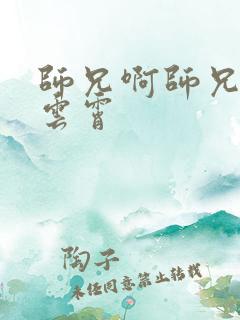 師兄啊師兄
雲霄
陶子
未经同意禁止转载